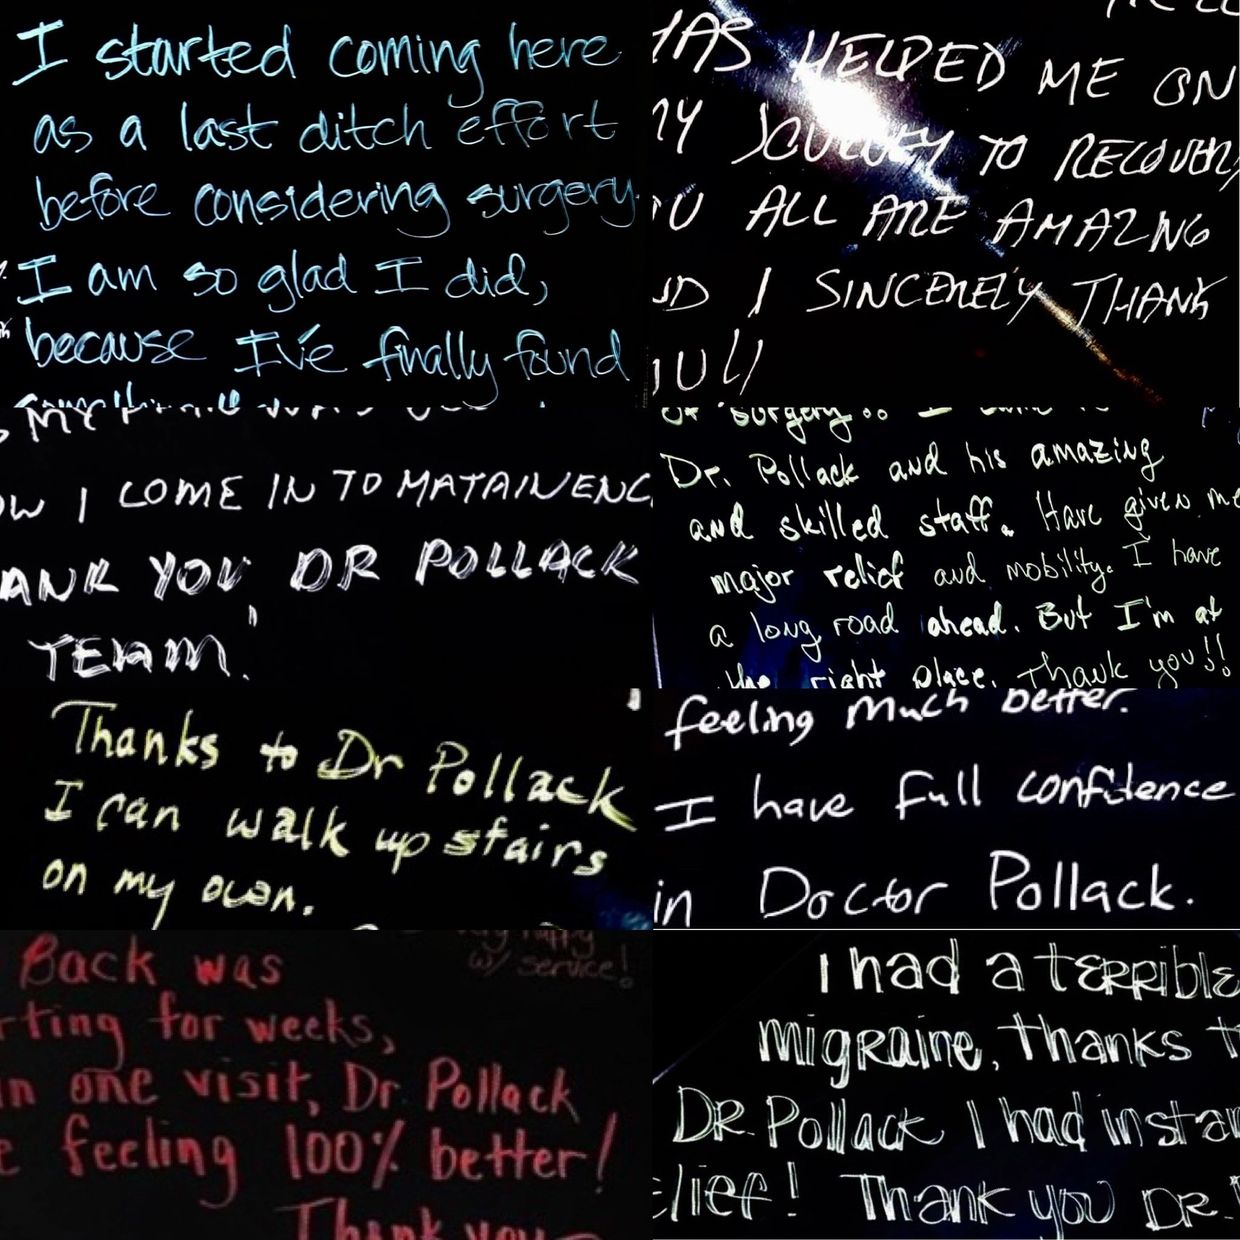 I started coming here
as a last ditch effort
before considering surgery.
I am so glad I did,
because I've finally found
HAS HELPED ME ON
MY JOURNEY TO RECOVERY
YOU ALL ARE AMAZING
AND I SINCERELY THANK
YOU!!
MY
OW I COME IN TO MATAINENC
ANK YOU, DR POLLACK
TEAM.
or surgery.. I came to
Dr. Pollack and his amazing
and skilled staff. Have given me
major relief and mobility. I have
a long road ahead. But I'm at
the right place. Thank you!!
Thanks to Dr Pollack
I can walk up stairs
on my own.
feeling much better.
I have full confidence
in Doctor Pollack.
very happy
w/ service!
Back was
rting for weeks,
in one visit, Dr. Pollack
e feeling 100% better!
Thank you
I had a terrible
migraine, thanks t
Dr. Pollack I had instan
elief! Thank you Dr.